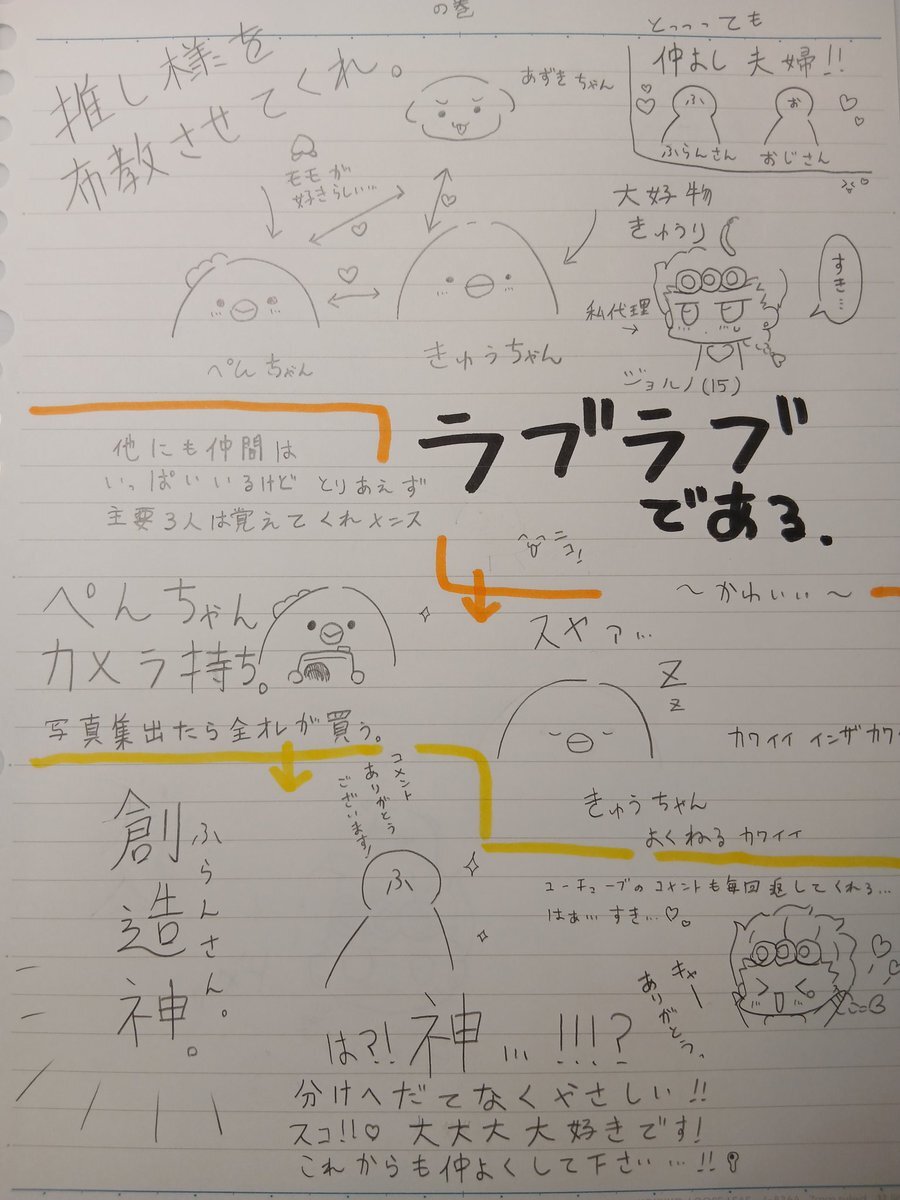 の巻
推し様を
布教させてくれ。
あずきちゃん
とっっっても
仲よし夫婦!!
ふ
お
ふらんさん
おじさん
ももが
好きらしい…
大好物
きゅうり
すき…
私代理
→
ジョルノ(15)
ぺんちゃん
きゅうちゃん
ラブラブ
である.
他にも仲間は
いっぱいいるけど とりあえず
主要3人は覚えてくれメンス
ニコ!
〜かわいい〜
ぺんちゃん
カメラ持ち。
写真集出たら全オレが買う。
スヤァ…
Z
z
カワイイ インザカワ
きゅうちゃん
よくねる カワイイ
コメント
ありがとう
ございます!
ふ
創造神。
ふらんさん。
ユーチューブのコメントも毎回返してくれる…
はぁ…すき…♡。
キャー
ありがとう、
は?!神…!!!?
分けへだてなくやさしい!!
スコ!!♡ 大大大大好きです!
これからも仲よくして下さい…!!